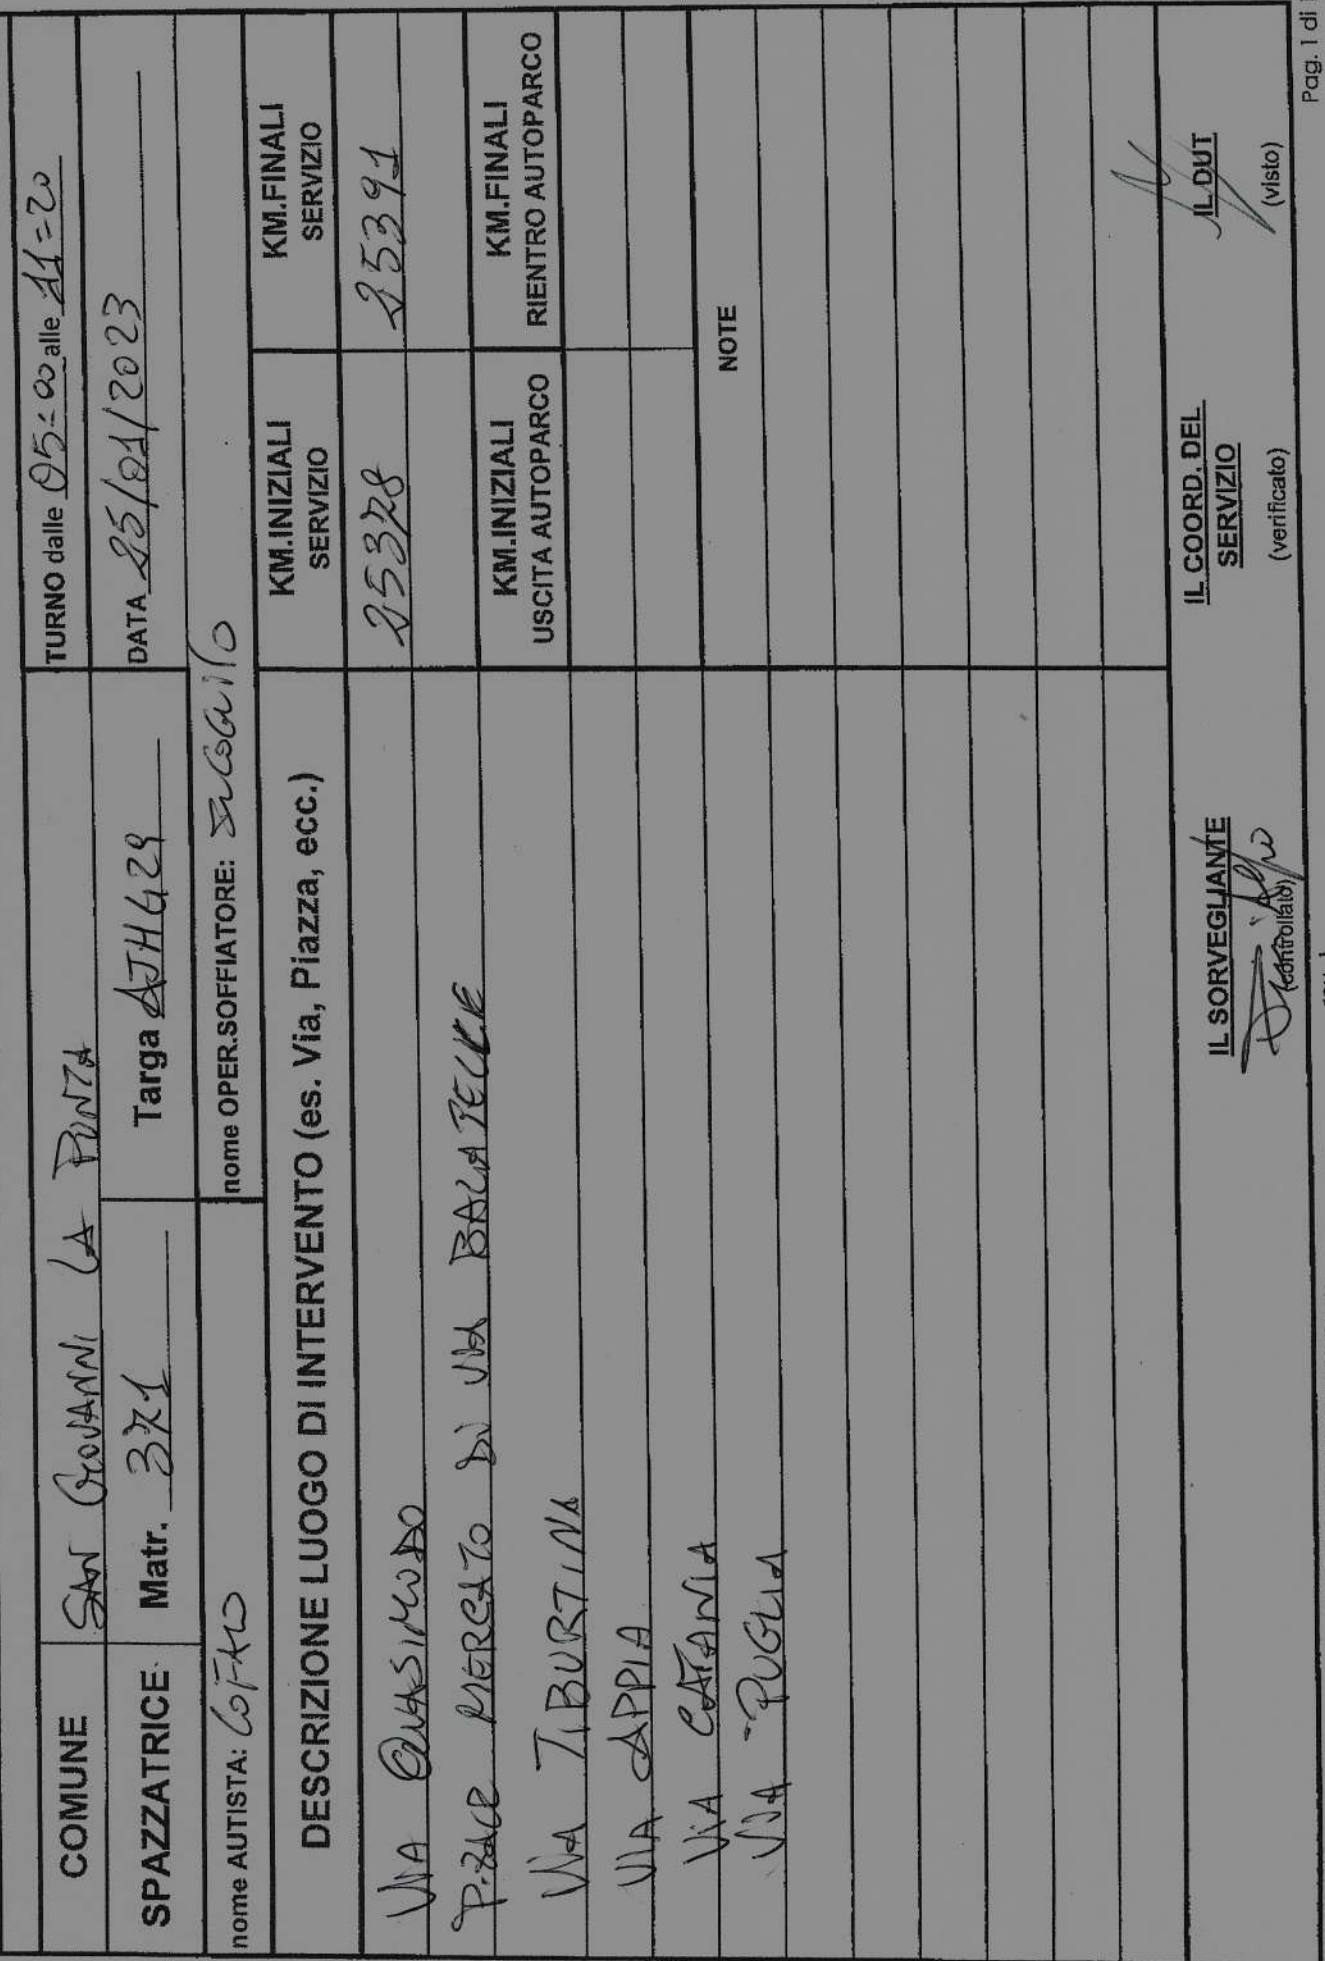 COMUNE SAN GIOVANNI LA PUNTA TURNO dalle 05=00 alle 11=20
SPAZZATRICE Matr. 371 Targa AJH429 DATA 25/01/2023
nome AUTISTA: nome OPER.SOFFIATORE:
DESCRIZIONE LUOGO DI INTERVENTO (es. Via, Piazza, ecc.) KM.INIZIALI SERVIZIO KM.FINALI SERVIZIO
VIA QUASIMODO 25378 25391
P.ZALE MERCATO DI VIA BALATELLE
KM.INIZIALI USCITA AUTOPARCO KM.FINALI RIENTRO AUTOPARCO
VIA TIBURTINA
VIA APPIA
VIA CATANIA
NOTE
VIA PUGLIA
IL SORVEGLIANTE IL COORD. DEL SERVIZIO IL DUT
(controllato) (verificato) (visto)
Pag. 1 di